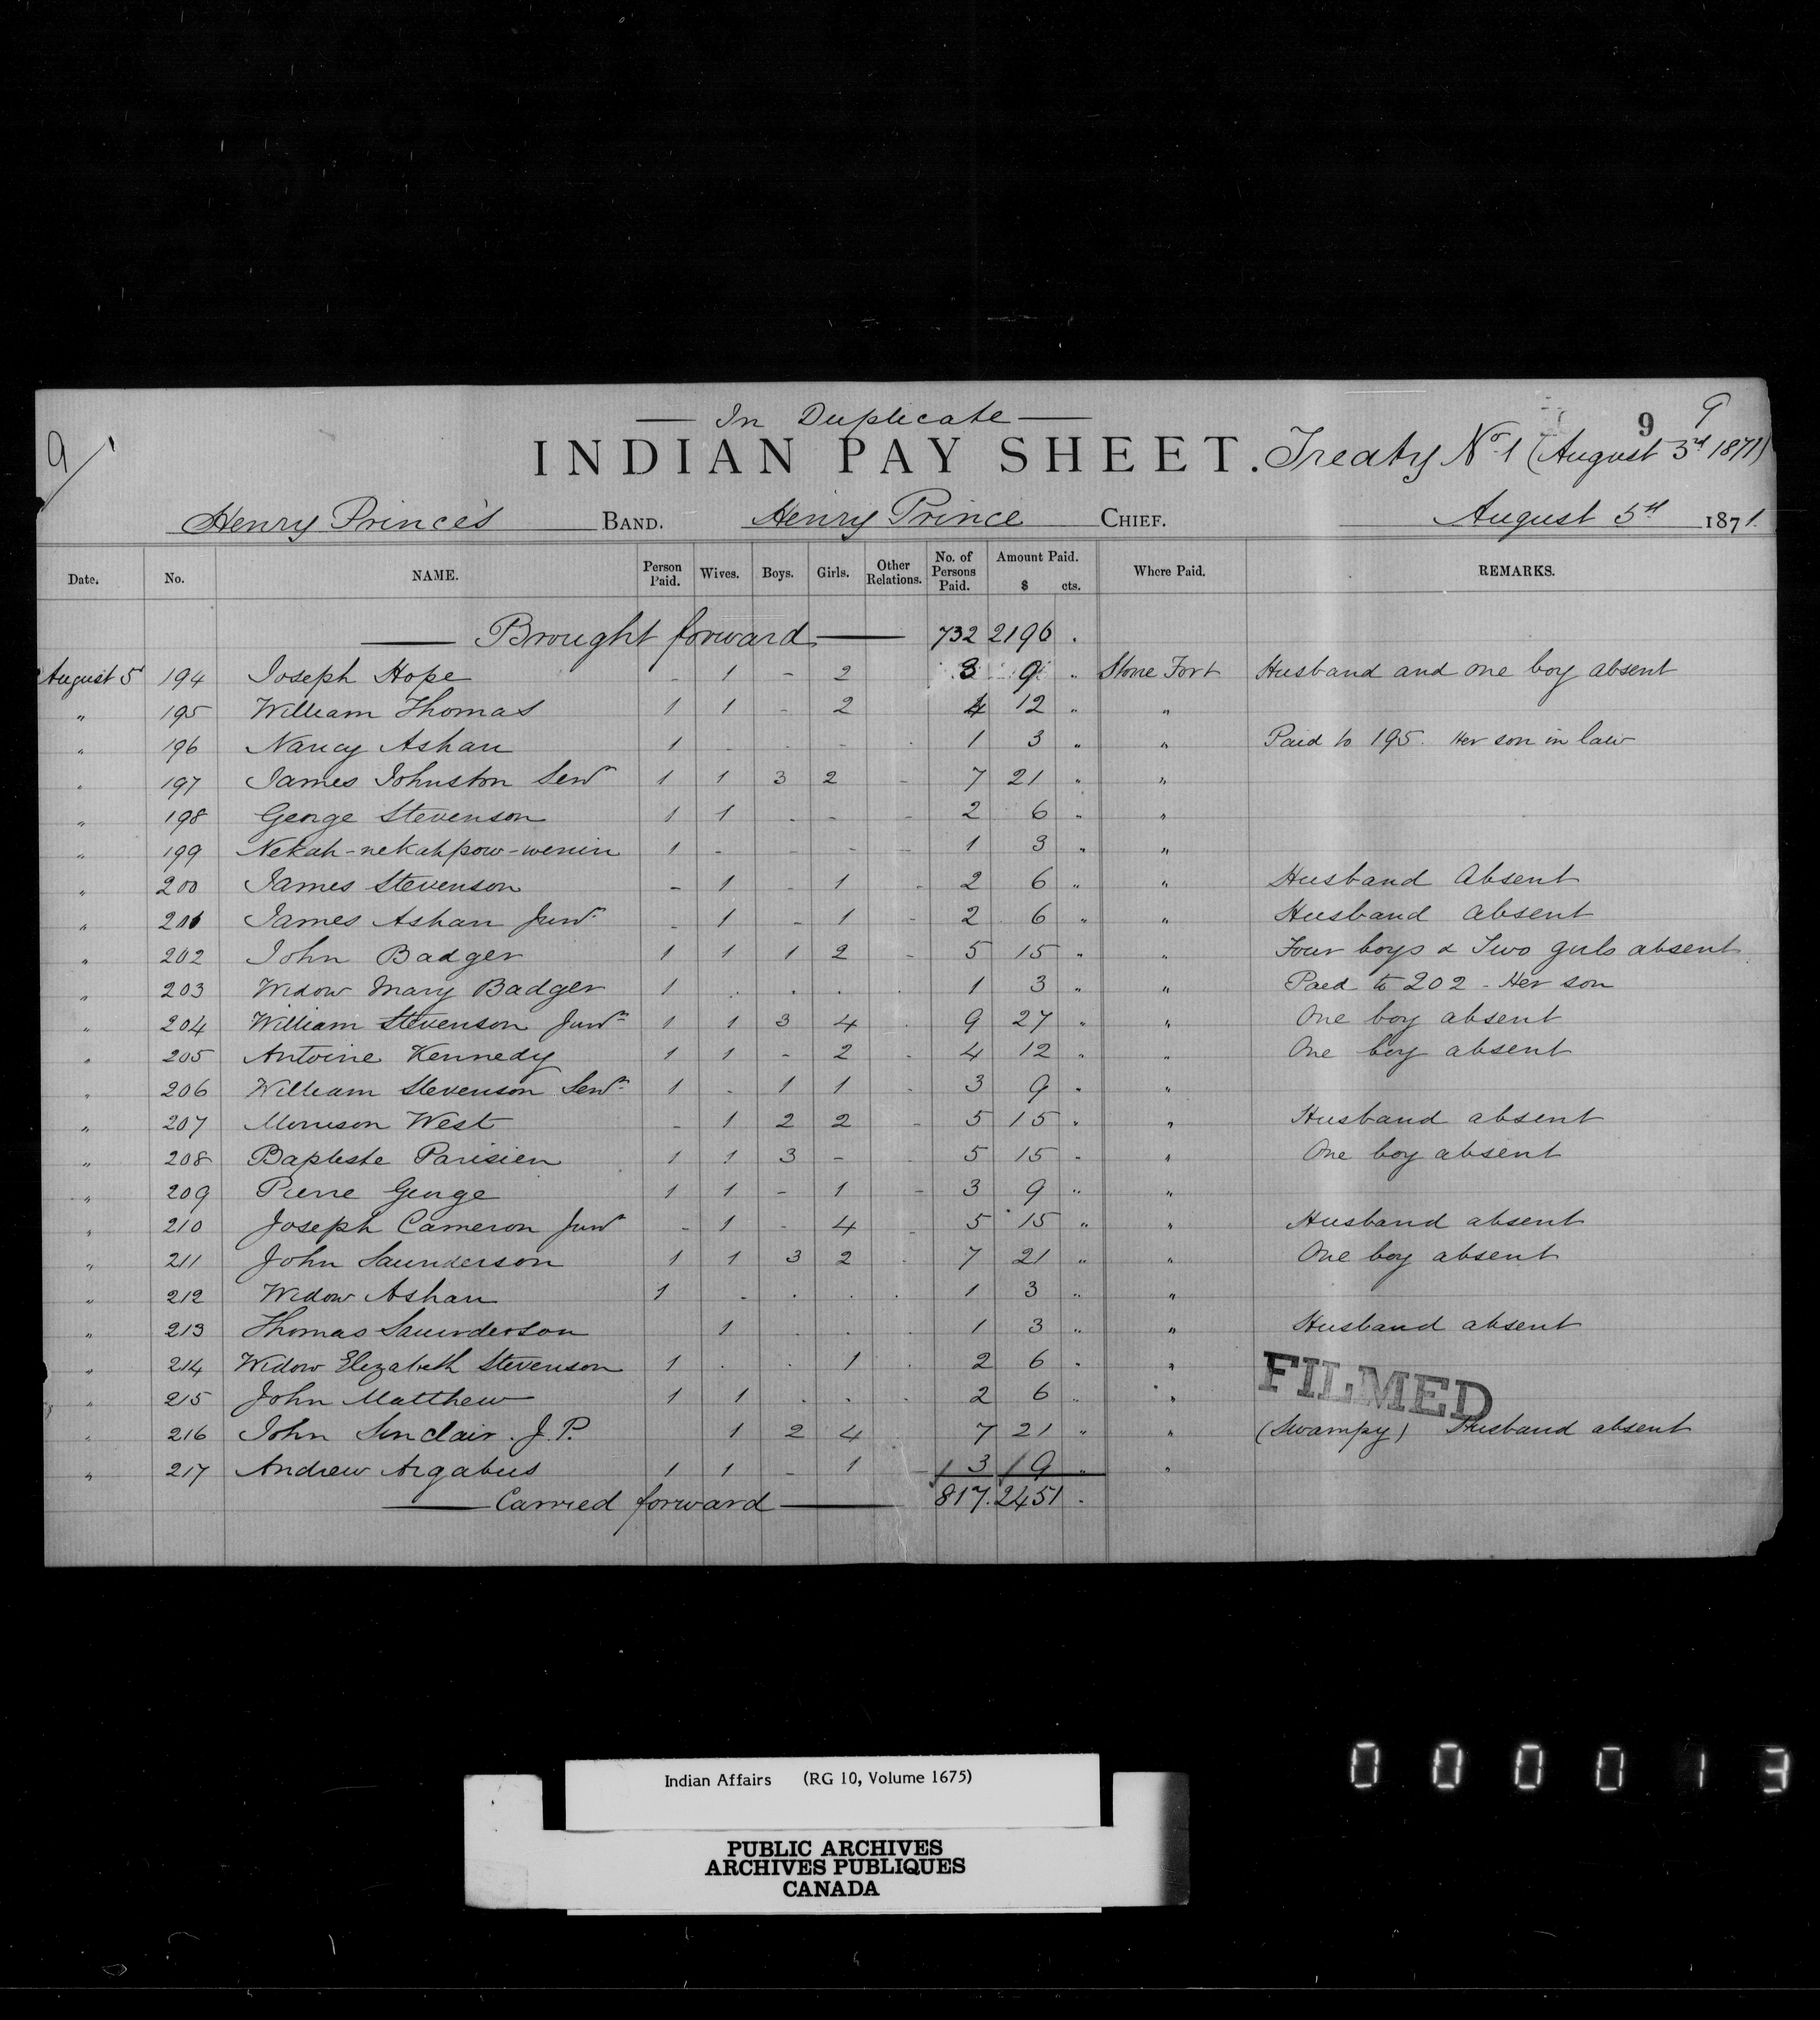 — In Duplicate —
9 9 9
INDIAN PAY SHEET. Treaty No. 1 (August 3rd 1871)
Henry Prince's BAND. Henry Prince CHIEF. August 5th 1871.
Date. No. NAME. Person Paid. Wives. Boys. Girls. Other Relations. No. of Persons Paid. Amount Paid. $ cts. Where Paid. REMARKS.
— Brought forward — 732 2196 .
August 5 194 Joseph Hope - 1 - 2 3 9 " Stone Fort Husband and one boy absent
" 195 William Thomas 1 1 - 2 4 12 " "
" 196 Nancy Ashan 1 - - - . 1 3 " " Paid to 195. Her son in law
" 197 James Johnston Senr 1 1 3 2 - 7 21 " "
" 198 George Stevenson 1 1 . - - 2 6 " "
" 199 Nekah-nekahpow-wenin 1 - - - - 1 3 " "
" 200 James Stevenson - 1 . 1 - 2 6 " " Husband Absent
" 201 James Ashan Junr - 1 - 1 - 2 6 " " Husband absent
" 202 John Badger 1 1 1 2 - 5 15 " " Four boys & Two girls absent
" 203 Widow Mary Badger 1 . . . . 1 3 " " Paid to 202 - Her son
" 204 William Stevenson Junr 1 1 3 4 . 9 27 " " One boy absent
" 205 Antoine Kennedy 1 1 - 2 - 4 12 " " One boy absent
" 206 William Stevenson Senr 1 - 1 1 - 3 9 " "
" 207 Morrison West - 1 2 2 - 5 15 " " Husband absent
" 208 Baptiste Parisien 1 1 3 - 5 15 " " One boy absent
" 209 Pierre George 1 1 - 1 - 3 9 " "
" 210 Joseph Cameron Junr - 1 - 4 - 5 15 " " Husband absent
" 211 John Saunderson 1 1 3 2 . 7 21 " " One boy absent
" 212 Widow Ashan 1 . . . . 1 3 " "
" 213 Thomas Saunderson 1 . . . 1 3 " " Husband absent
" 214 Widow Elizabeth Stevenson 1 . . 1 . 2 6 " "
FILMED
" 215 John Matthew 1 1 . . . 2 6 " "
" 216 John Sinclair. J.P. 1 2 4 7 21 " " (Swampy) Husband absent
" 217 Andrew Argabus 1 1 - 1 - 3 9 " "
— Carried forward — 817. 2451 .
000013
Indian Affairs (RG 10, Volume 1675)
PUBLIC ARCHIVES
ARCHIVES PUBLIQUES
CANADA